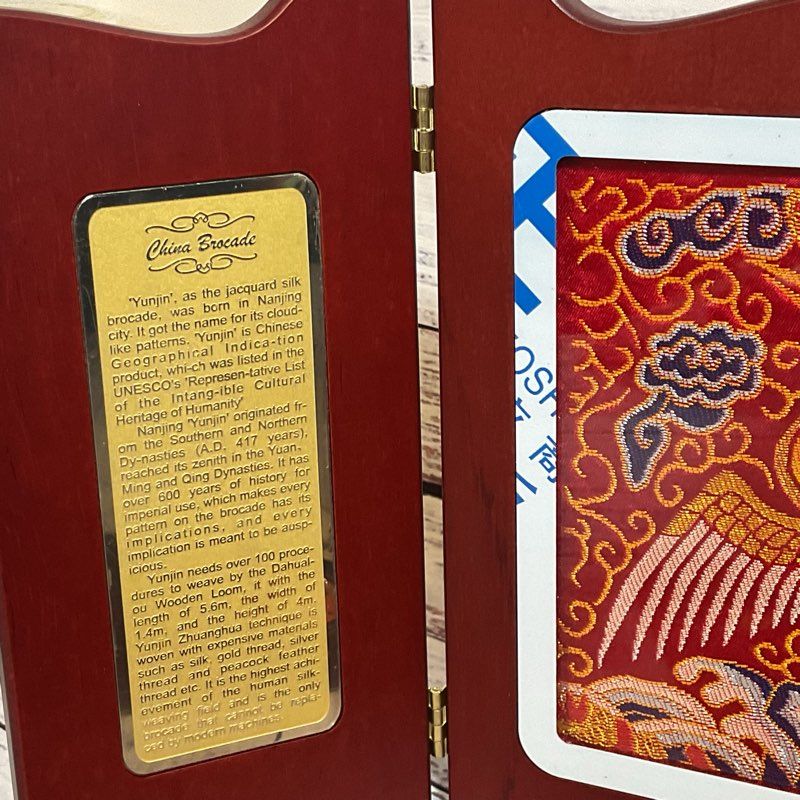 China Brocade
'Yunjin', as the jacquard silk
brocade, was born in Nanjing
city. It got the name for its cloud-
like patterns. 'Yunjin' is Chinese
Geographical Indica-tion
product, whi-ch was listed in the
UNESCO's 'Represen-tative List
of the Intang-ible Cultural
Heritage of Humanity'
Nanjing 'Yunjin' originated fr-
om the Southern and Northern
Dy-nasties (A.D. 417 years),
reached its zenith in the Yuan,
Ming and Qing Dynasties. It has
over 600 years of history for
imperial use, which makes every
pattern on the brocade has its
implications, and every
implication is meant to be ausp-
icious.
Yunjin needs over 100 proce-
dures to weave by the Dahual-
ou Wooden Loom, it with the
length of 5.6m, the width of
1.4m, and the height of 4m.
Yunjin Zhuanghua technique is
woven with expensive materials
such as silk, gold thread, silver
thread and peacock feather
thread etc. It is the highest achi-
evement of the human silk-
weaving field and is the only
brocade that cannot be repla-
ced by modern machines.
OSH